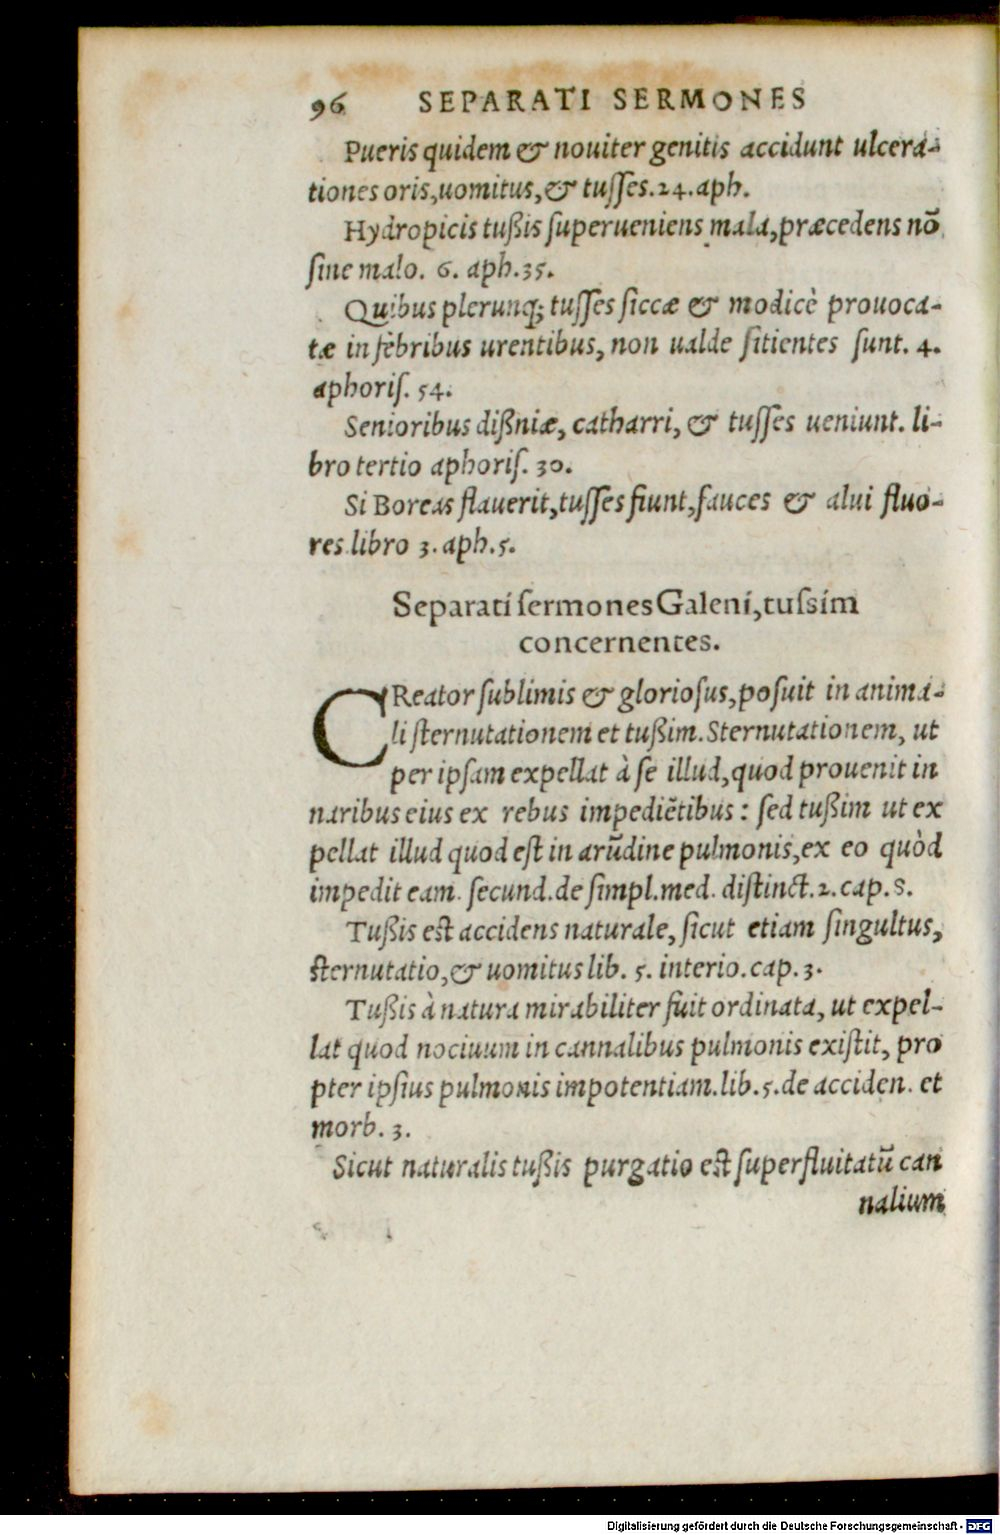 96 SEPARATI SERMONES
Pueris quidem & nouiter genitis accidunt ulcera-
tiones oris, uomitus, & tuſſes. 24. aph.
Hydropicis tußis ſuperueniens mala, præcedens nō
ſine malo. 6. aph. 35.
Quibus plerunq; tuſſes ſiccæ & modicè prouoca-
tæ in febribus urentibus, non ualde ſitientes ſunt. 4.
aphoriſ. 54.
Senioribus dißniæ, catharri, & tuſſes ueniunt. li-
bro tertio aphoriſ. 30.
Si Boreas flauerit, tuſſes fiunt, fauces & alui fluo-
res libro 3. aph. 5.
Separati ſermones Galeni, tuſsim
concernentes.
CReator ſublimis & glorioſus, poſuit in anima-
li ſternutationem et tußim. Sternutationem, ut
per ipſam expellat à ſe illud, quod prouenit in
naribus eius ex rebus impediētibus : ſed tußim ut ex
pellat illud quod eſt in arūdine pulmonis, ex eo quòd
impedit eam. ſecund. de ſimpl. med. diſtinct. 2. cap. 8.
Tußis eſt accidens naturale, ſicut etiam ſingultus,
ſternutatio, & uomitus lib. 5. interio. cap. 3.
Tußis à natura mirabiliter fuit ordinata, ut expel-
lat quod nociuum in cannalibus pulmonis exiſtit, pro
pter ipſius pulmonis impotentiam. lib. 5. de acciden. et
morb. 3.
Sicut naturalis tußis purgatio eſt ſuperfluitatū can
nalium
Digitalisierung gefördert durch die Deutsche Forschungsgemeinschaft - DFG